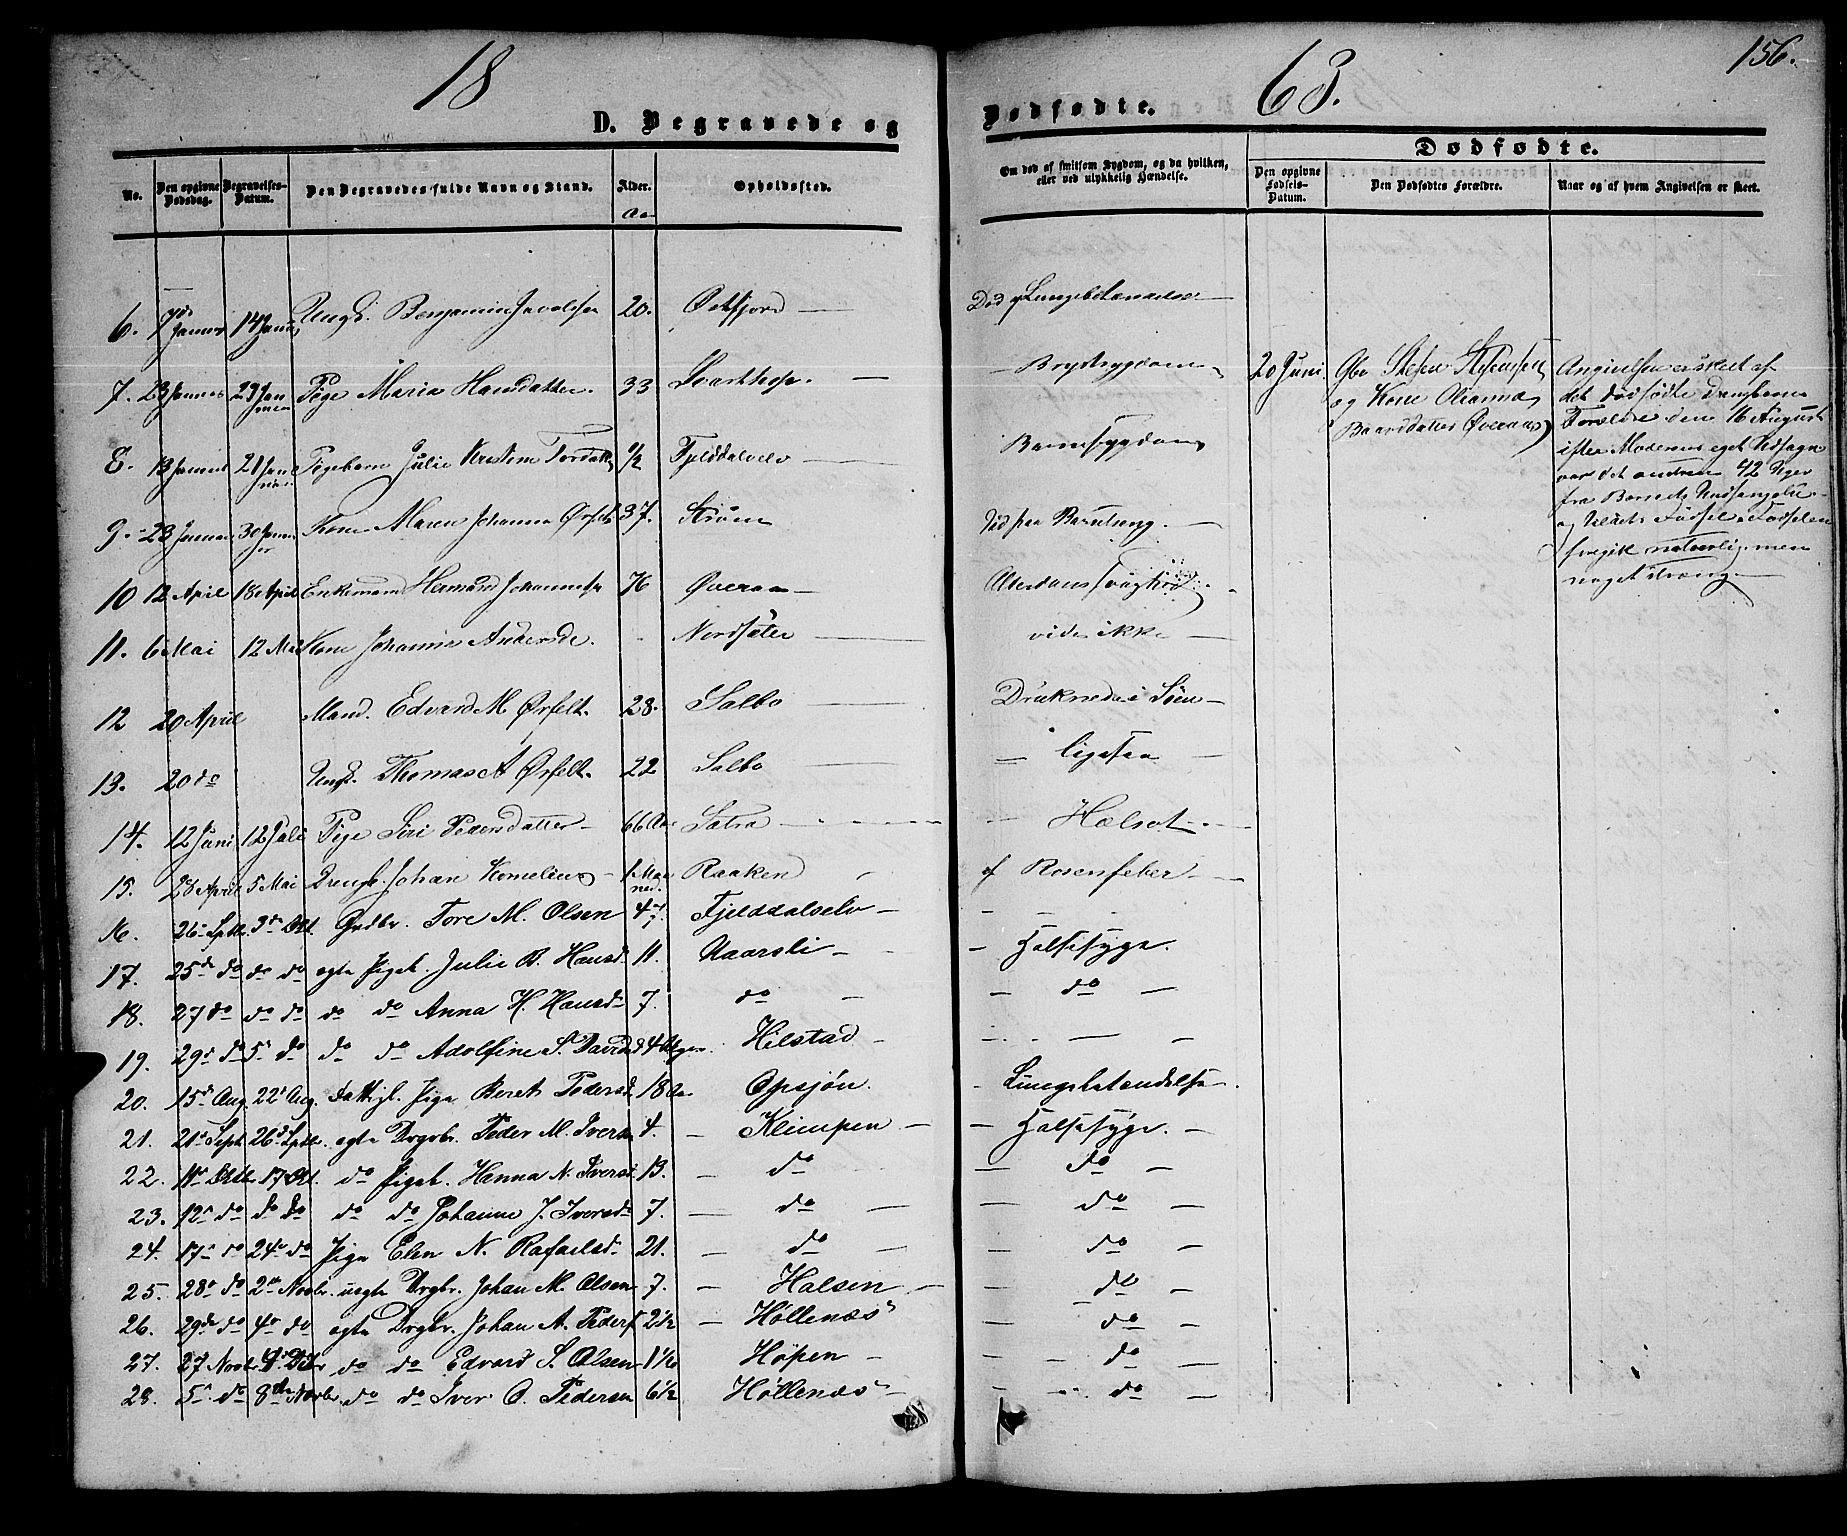 18 63. 156.
D. Begravede og Dødfødte.
No. Den opgivne Dødsdag. Begravelses-Datum. Den Begravedes fulde Navn og Stand. Alder. Opholdssted. Om død af smitsom Sygdom, og da hvilken, eller ved ulykkelig Hændelse.
Dødfødte.
Den opgivne Fødsels-Datum. Den Dødfødtes Forældre. Naar og af hvem Angivelsen er skeet.
6. 7de 14 Benjamin 20. Østfjord — Død
7. 23 29 Pige Maria Hansdatter. 33 — Brystsygdom
8. 13 21 Pigebarn Julie 1/2 Fjelddalselv — Barnsygdom
9. 23 30 Kone Maren Johanna Ørfelt 37. Strøm Død paa Barselseng. —
10 12 April 18 April Enkemand Hermand Johannesen 76 Øveraa — Alderdomssvaghed
11. 6 Mai 12 Mai Kone Johanna Andersd. Nordsæter — vides ikke —
12 20 April Mand. Edvard M. Ørfelt. 28. Salbo — Druknede i Søen —
13. 20 do Ungk. Thomas A Ørfelt. 22 Salbo — ligesaa —
14. 12 Juni 12 Juli Pige Siri Pedersdatter — 66 Aar Sætra —
15. 28 April 5 Mai Drengb. Johan Kornelius — 1 Maaned. Raaken af Rosenfeber —
16. 26 Septb. 3de Okt. Grdbr. Tore M. Olsen 47. Fjelddalselv — —
17. 25de do do do ægte Pigeb. Julie B. Hansd. 11. Naarsli — — Halssyge.
18. 27 do do do do do Anna H. Hansd. 7. do — — do —
19. 29 do 5 do do do Adolfine S. Davidsd. 4 Uger. Hilstad —
20. 15d Aug. 22 Aug. Pige Beret Pedersd. 18 Aar Opsjøn. — Lungebetændelse.
21. 21 Sept. 26 Septb. ægte Drgbr. Peder M. Iversen 4. — Klimpen — — Halssyge. —
22. 11 Oktb. 17 Okt. do Pigeb. Hanna N. Iversd. 13. — do — do —
23. 12 do do do do do Johanne J. Iversd. 7. — do — — do —
24. 17 do 24 do Pige Elen N. Rafaelsd. 21. — do — — do —
25. 28 do 2den Novbr. uægte Drgbr. Johan M. Olsen 7. — Halsen — — do —
26. 29de do 4 do ægte Drgbr. Johan A. Peders. 2 1/2 — Høllenæs — do —
27. 27 Novbr. do do Edvard S. Olsen Høpen — — do —
28. 5 do 8de Novbr. do do Iver O. Pedersen 6 1/2 Høllenæs — do —
20 Juni
og Kone Olianna
Baarsdatter Øveraas
Angivelsen er skeet af
det dødfødte Drengebarns
Forældre den 16 August
efter Moderens eget Udsagn
var det omtrent 42 Uger
fra Barnets Undfangelse
og til dets Fødsel. Fødselen
foregik naturlig, men
noget streng —